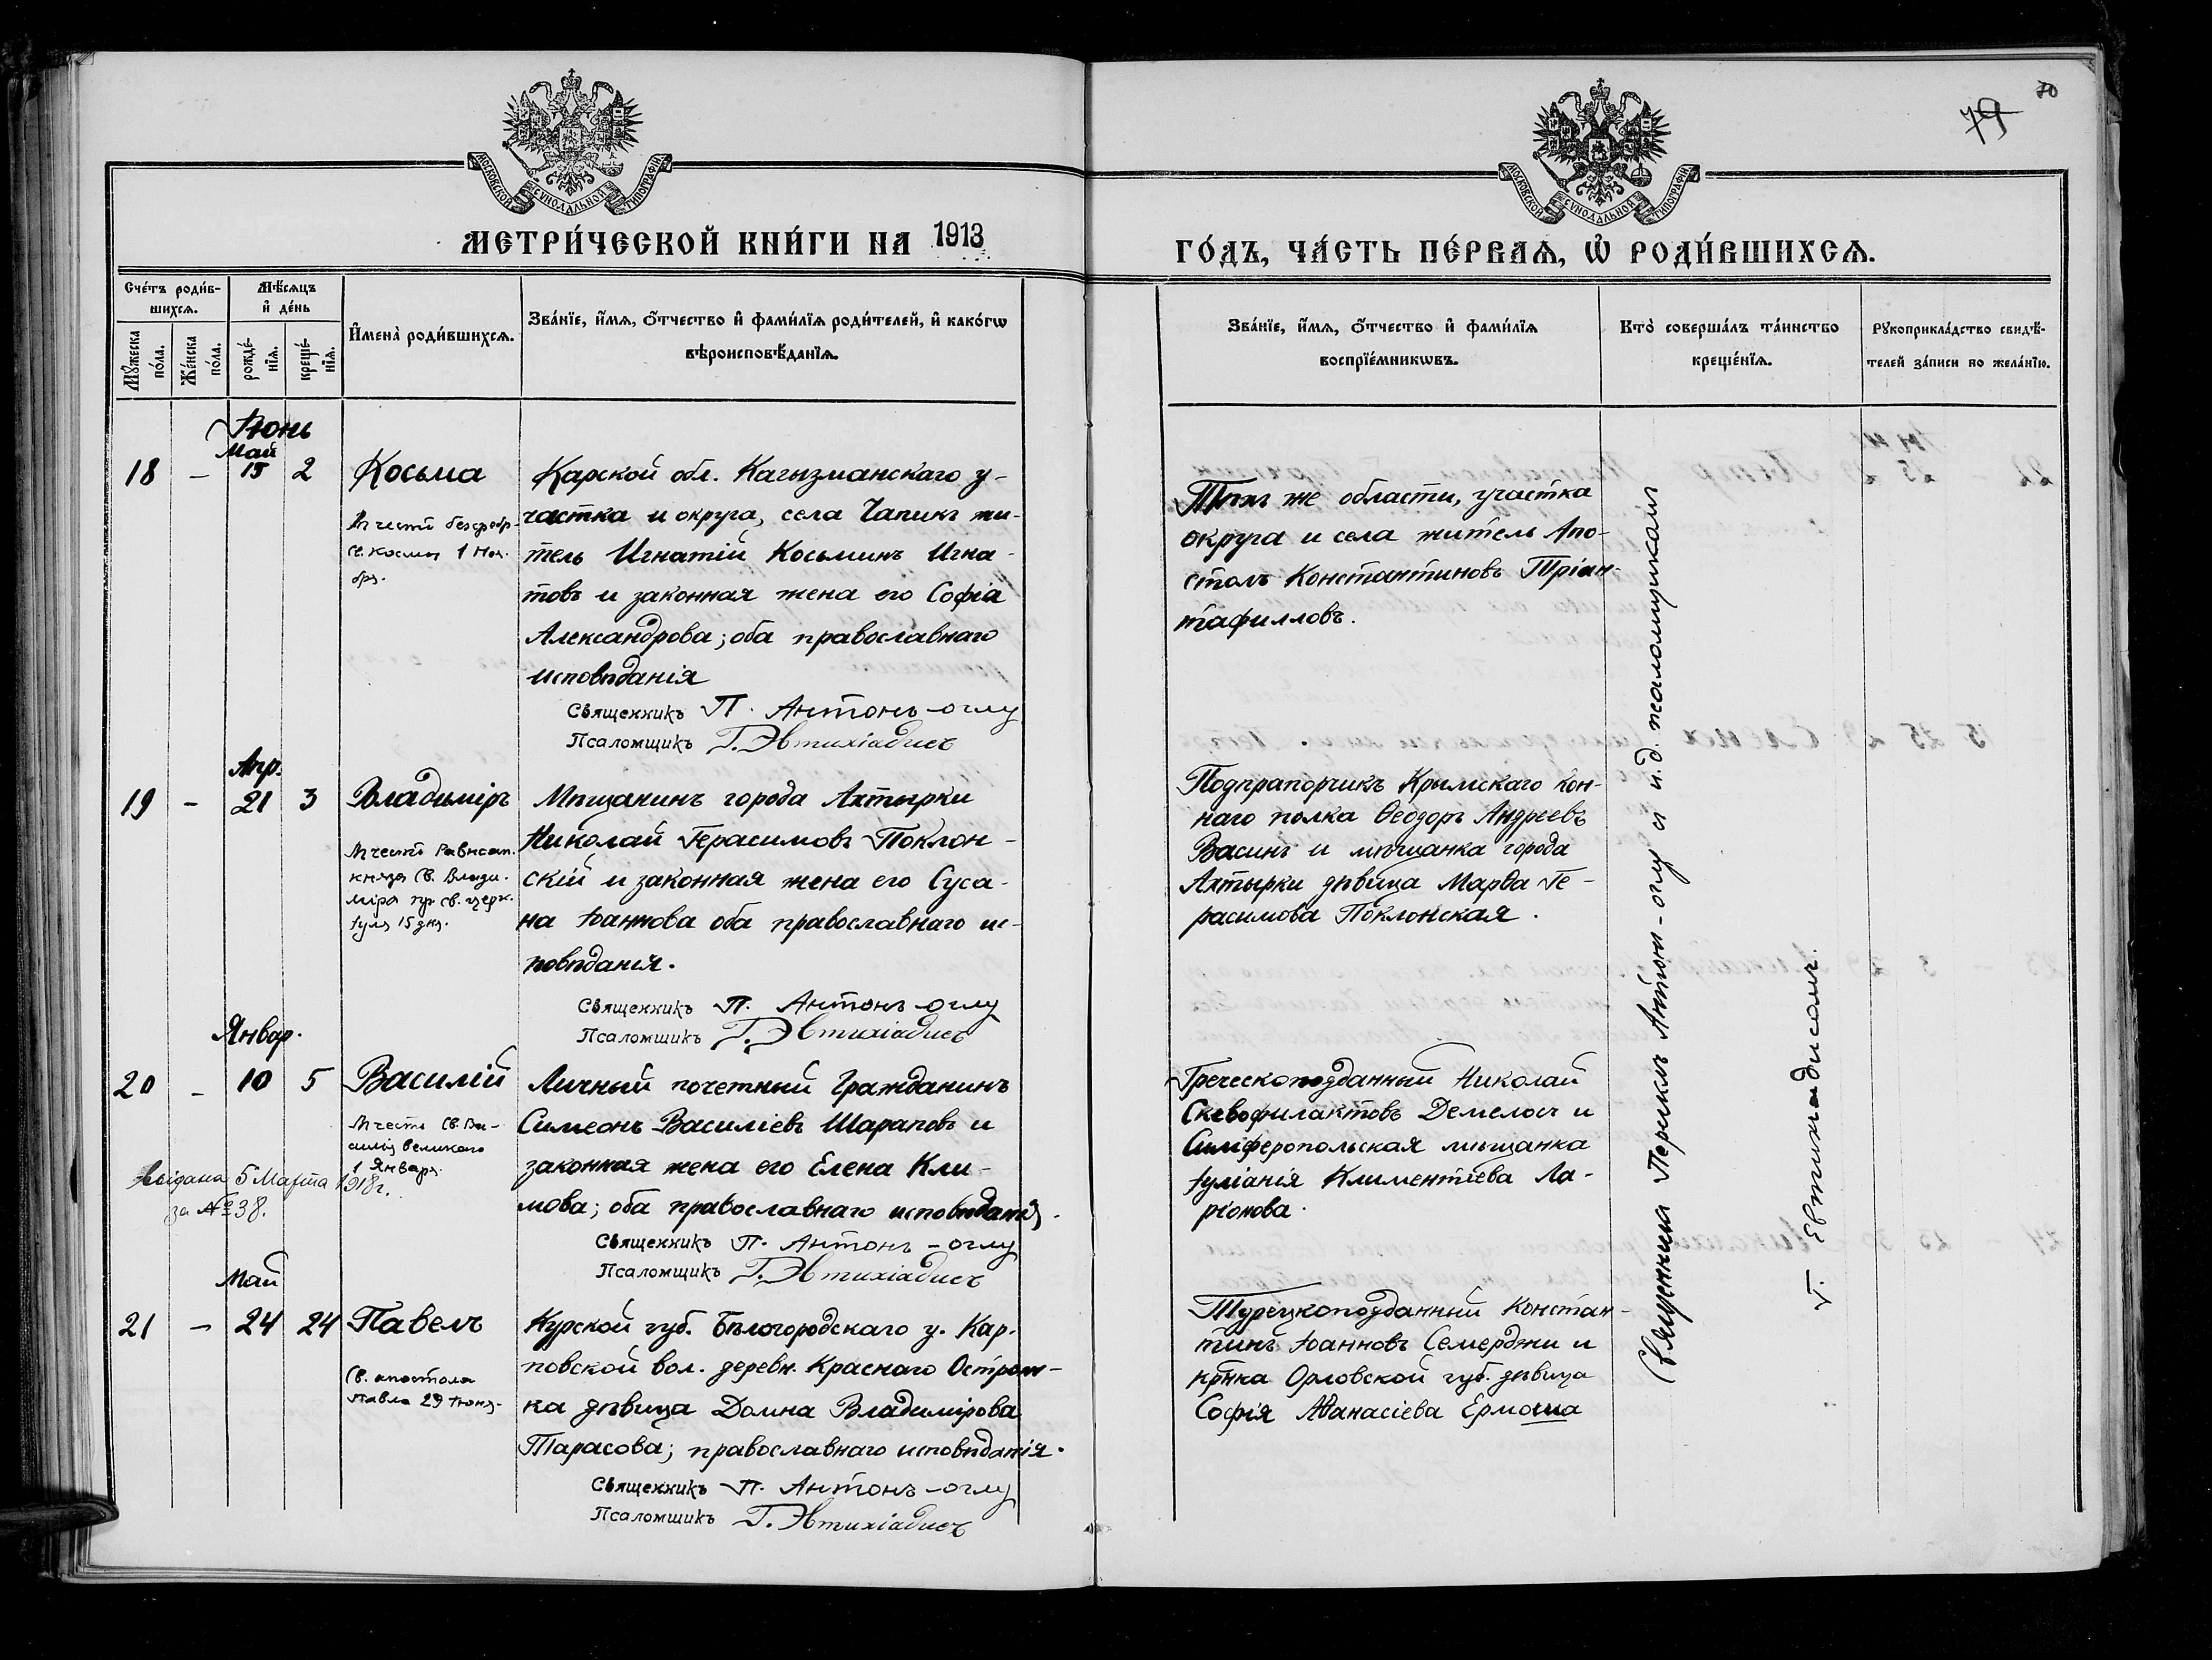 70
79
МОСКОВСКОЙ СѴНОДАЛЬНОЙ ТИПОГРАФІИ
МОСКОВСКОЙ СѴНОДАЛЬНОЙ ТИПОГРАФІИ
МЕТРИ́ЧЕСКОЙ КНИ́ГИ НА 1913
ГО́ДЪ, ЧА́СТЬ ПЕ́РВАѦ, Ѡ҆ РОДИ́ВШИХСѦ.
Сче́тъ роди́в-
шихсѧ.
Мѣ́сѧцъ
и҆ де́нь
Мꙋ́жеска
по́ла.
Же́нска
по́ла.
рожде́-
нїѧ.
креще́-
нїѧ.
И҆мена̀ роди́вшихсѧ.
Зва́нїе, и҆́мѧ, ѻ҆́тчество и҆ фамѝлїѧ роди́телей, и҆ како́гѡ
вѣроисповѣ́данїѧ.
Зва́нїе, и҆́мѧ, ѻ҆́тчество и҆ фамѝлїѧ
воспрїе́мникѡвъ.
Кто̀ соверша́лъ та́инство
креще́нїѧ.
Рꙋкоприкла́дство свидѣ́-
телей за́писи по жела́нїю.
Іюнь
Май
18 – 15 2 Косьма
Въ честь безсребр.
св. Космы 1 Ноя-
бря.
Карской обл. Кагызманскаго у-
частка и округа, села Чапикъ жи-
тель Игнатій Косьминъ Игна-
товъ и законная жена его Софіа
Александрова; оба православнаго
исповѣданія
Священникъ П. Антонъ-оглу
Псаломщикъ Г. Эвтихіадисъ
Той же области, участка
округа и села житель Апо-
столъ Константиновъ Тріан-
тафилловъ.
Апр.
19 – 21 3 Владиміръ
Въ честь Равноап.
князя Св. Влади-
міра пр св. церк.
Іуля 15 дня.
Мѣщанинъ города Ахтырки
Николай Герасимовъ Поклон-
скій и законная жена его Суса-
на Іоаннова оба православнаго ис-
повѣданія.
Священникъ П. Антонъ-оглу
Псаломщикъ Г. Эвтихіадисъ
Подпрапорщикъ Крымскаго кон-
наго полка Ѳеодоръ Андреевъ
Васинъ и мѣщанка города
Ахтырки дѣвица Марѳа Ге-
расимова Поклонская.
Январ.
20 – 10 5 Василій
Въ честь Св. Ва-
силія великаго
1 Января.
Выдана 5 Марта 1918 г.
за № 38.
Личный почетный Гражданинъ
Симеонъ Василіевъ Шараповъ и
законная жена его Елена Кли-
мова; оба православнаго исповѣданія.
Священникъ П. Антонъ-оглу
Псаломщикъ Г. Эвтихіадисъ
Греческоподданный Николай
Скевофилактовъ Демелосъ и
Симферопольская мѣщанка
Іуліанія Климентіева Ла-
ріонова.
Май
21 – 24 24 Павелъ
Св. апостола
Павла 29 Іюня.
Курской губ. Бѣлогородскаго у. Кар-
повской вол. деревн. Краснаго Острож-
ка дѣвица Домна Владимірова
Тарасова; православнаго исповѣданія.
Священникъ П. Антонъ-оглу
Псаломщикъ Г. Эвтихіадисъ
Турецкоподданный Констан-
тинъ Іоанновъ Семерджи и
кр-нка Орловской губ. дѣвица
Софія Аѳанасіева Ермоша
Священникъ Периклъ Антонъ-оглу съ и.д. псаломщикомъ
Г. Евтихіадисомъ.